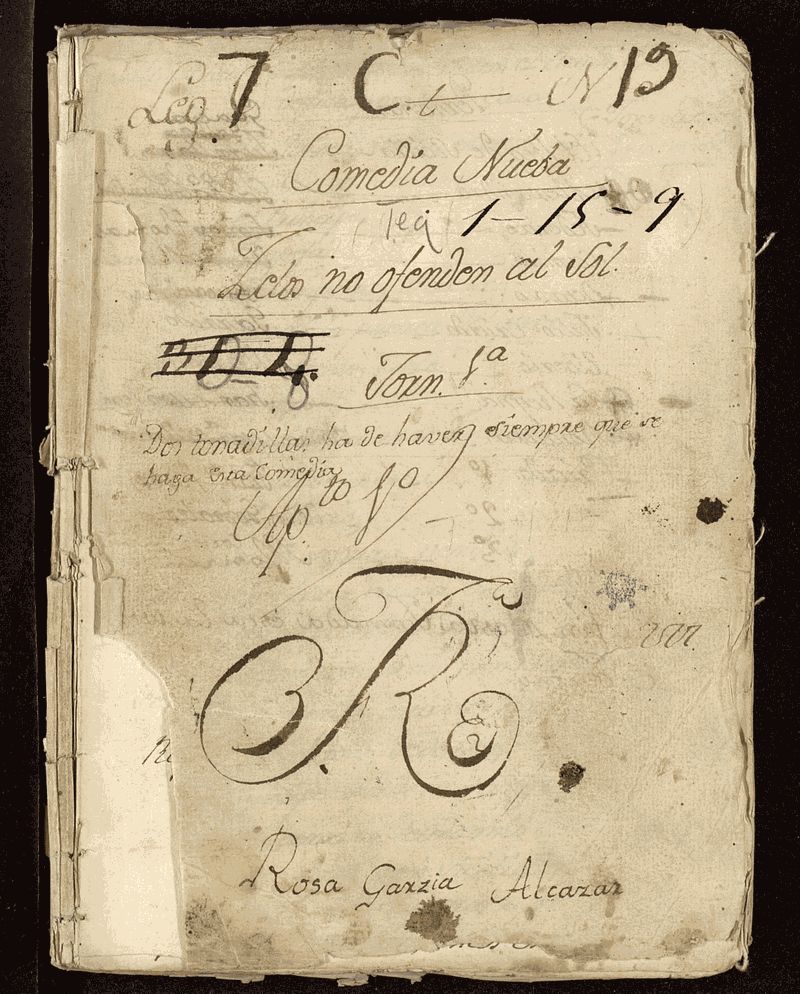 Leg. 7 C. t N 19
Comedia Nueba
Tea 1-15-9
Zelos no ofenden al Sol.
Jorn. 1ª
Dos tonadillas ha de haver siempre que se
haga esta Comedia
Ap.to 1º
Rosa Garzia Alcazar